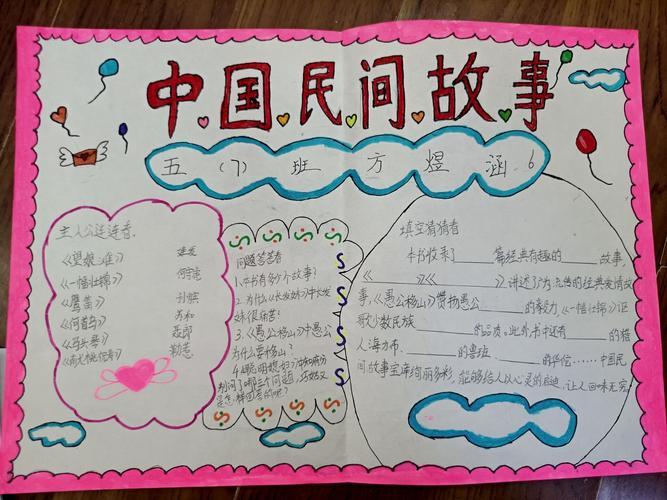 中国民间故事
五(7)班方煜涵 6
主人公连连看.
《望娘滩》
《一幅壮锦》
《鹰笛》
《何首乌》
《马头琴》
何能嗣
苏和
聂郎
勒惹
问题答答看
1.本书有多少个故事?
2.为什么《长发妹》中长发
妹很痛苦?
3.《愚公移山》中愚公
为什么要移山?
填空猜猜看
本书收录了____篇经典有趣的____故事,
《____》《____》讲述了广为流传的经典爱情故
事,《愚公移山》赞扬愚公____的毅力,《一幅壮锦》讴
歌少数民族____的品质。此外书中还有____的猎
人海力布、____的鲁班、____的华佗……中国民
间故事宝库绚丽多彩,能够给人以心灵的启迪,让人回味无穷